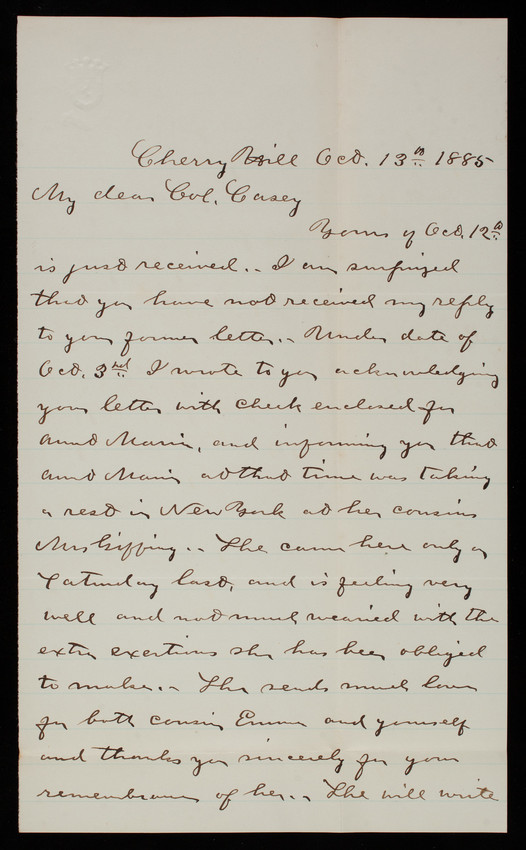 Cherry Hill Oct. 13th 1885
My dear Col. Casey
Yours of Oct. 12th
is just received.. I am surprized
that you have not received my reply
to your former letter.. Under date of
Oct. 3rd I wrote to you acknowledging
your letter with check enclosed for
Aunt Maria, and informing you that
Aunt Maria at that time was taking
a rest in New York at her cousins
Mrs. . She came here only on
Saturday last, and is feeling very
well and not much wearied with the
extra exertions she has been obliged
to make.. She sends much love
for both cousin Emma and yourself
and thanks you sincerely for your
remembrance of her.. She will write